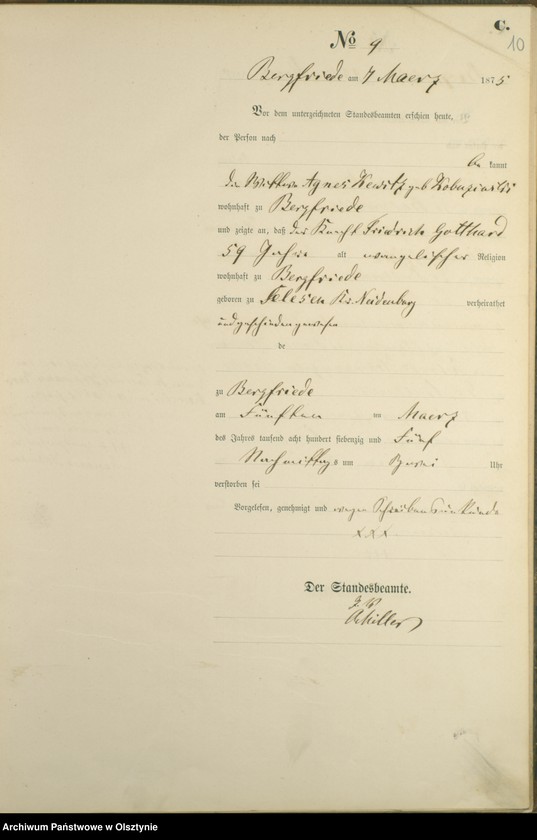 C.
10
No 9
Bergfriede am 7 Maerz 1875
Vor dem unterzeichneten Standesbeamten erschien heute,
der Person nach
be kannt
die Wittwe Agnes geb
wohnhaft zu Bergfriede
und zeigte an, daß der Knecht Friedrich Gotthard
59 Jahre alt evangelischer Religion
wohnhaft zu Bergfriede
geboren zu Kr. Neidenburg verheirathet
und geschieden gewesen
de
zu Bergfriede
am Fünften ten Maerz
des Jahres tausend acht hundert siebenzig und Fünf
Nachmittags um Uhr
verstorben sei
Vorgelesen, genehmigt und wegen Schreibensunkunde
XXX
Der Standesbeamte.
Archiwum Państwowe w Olsztynie